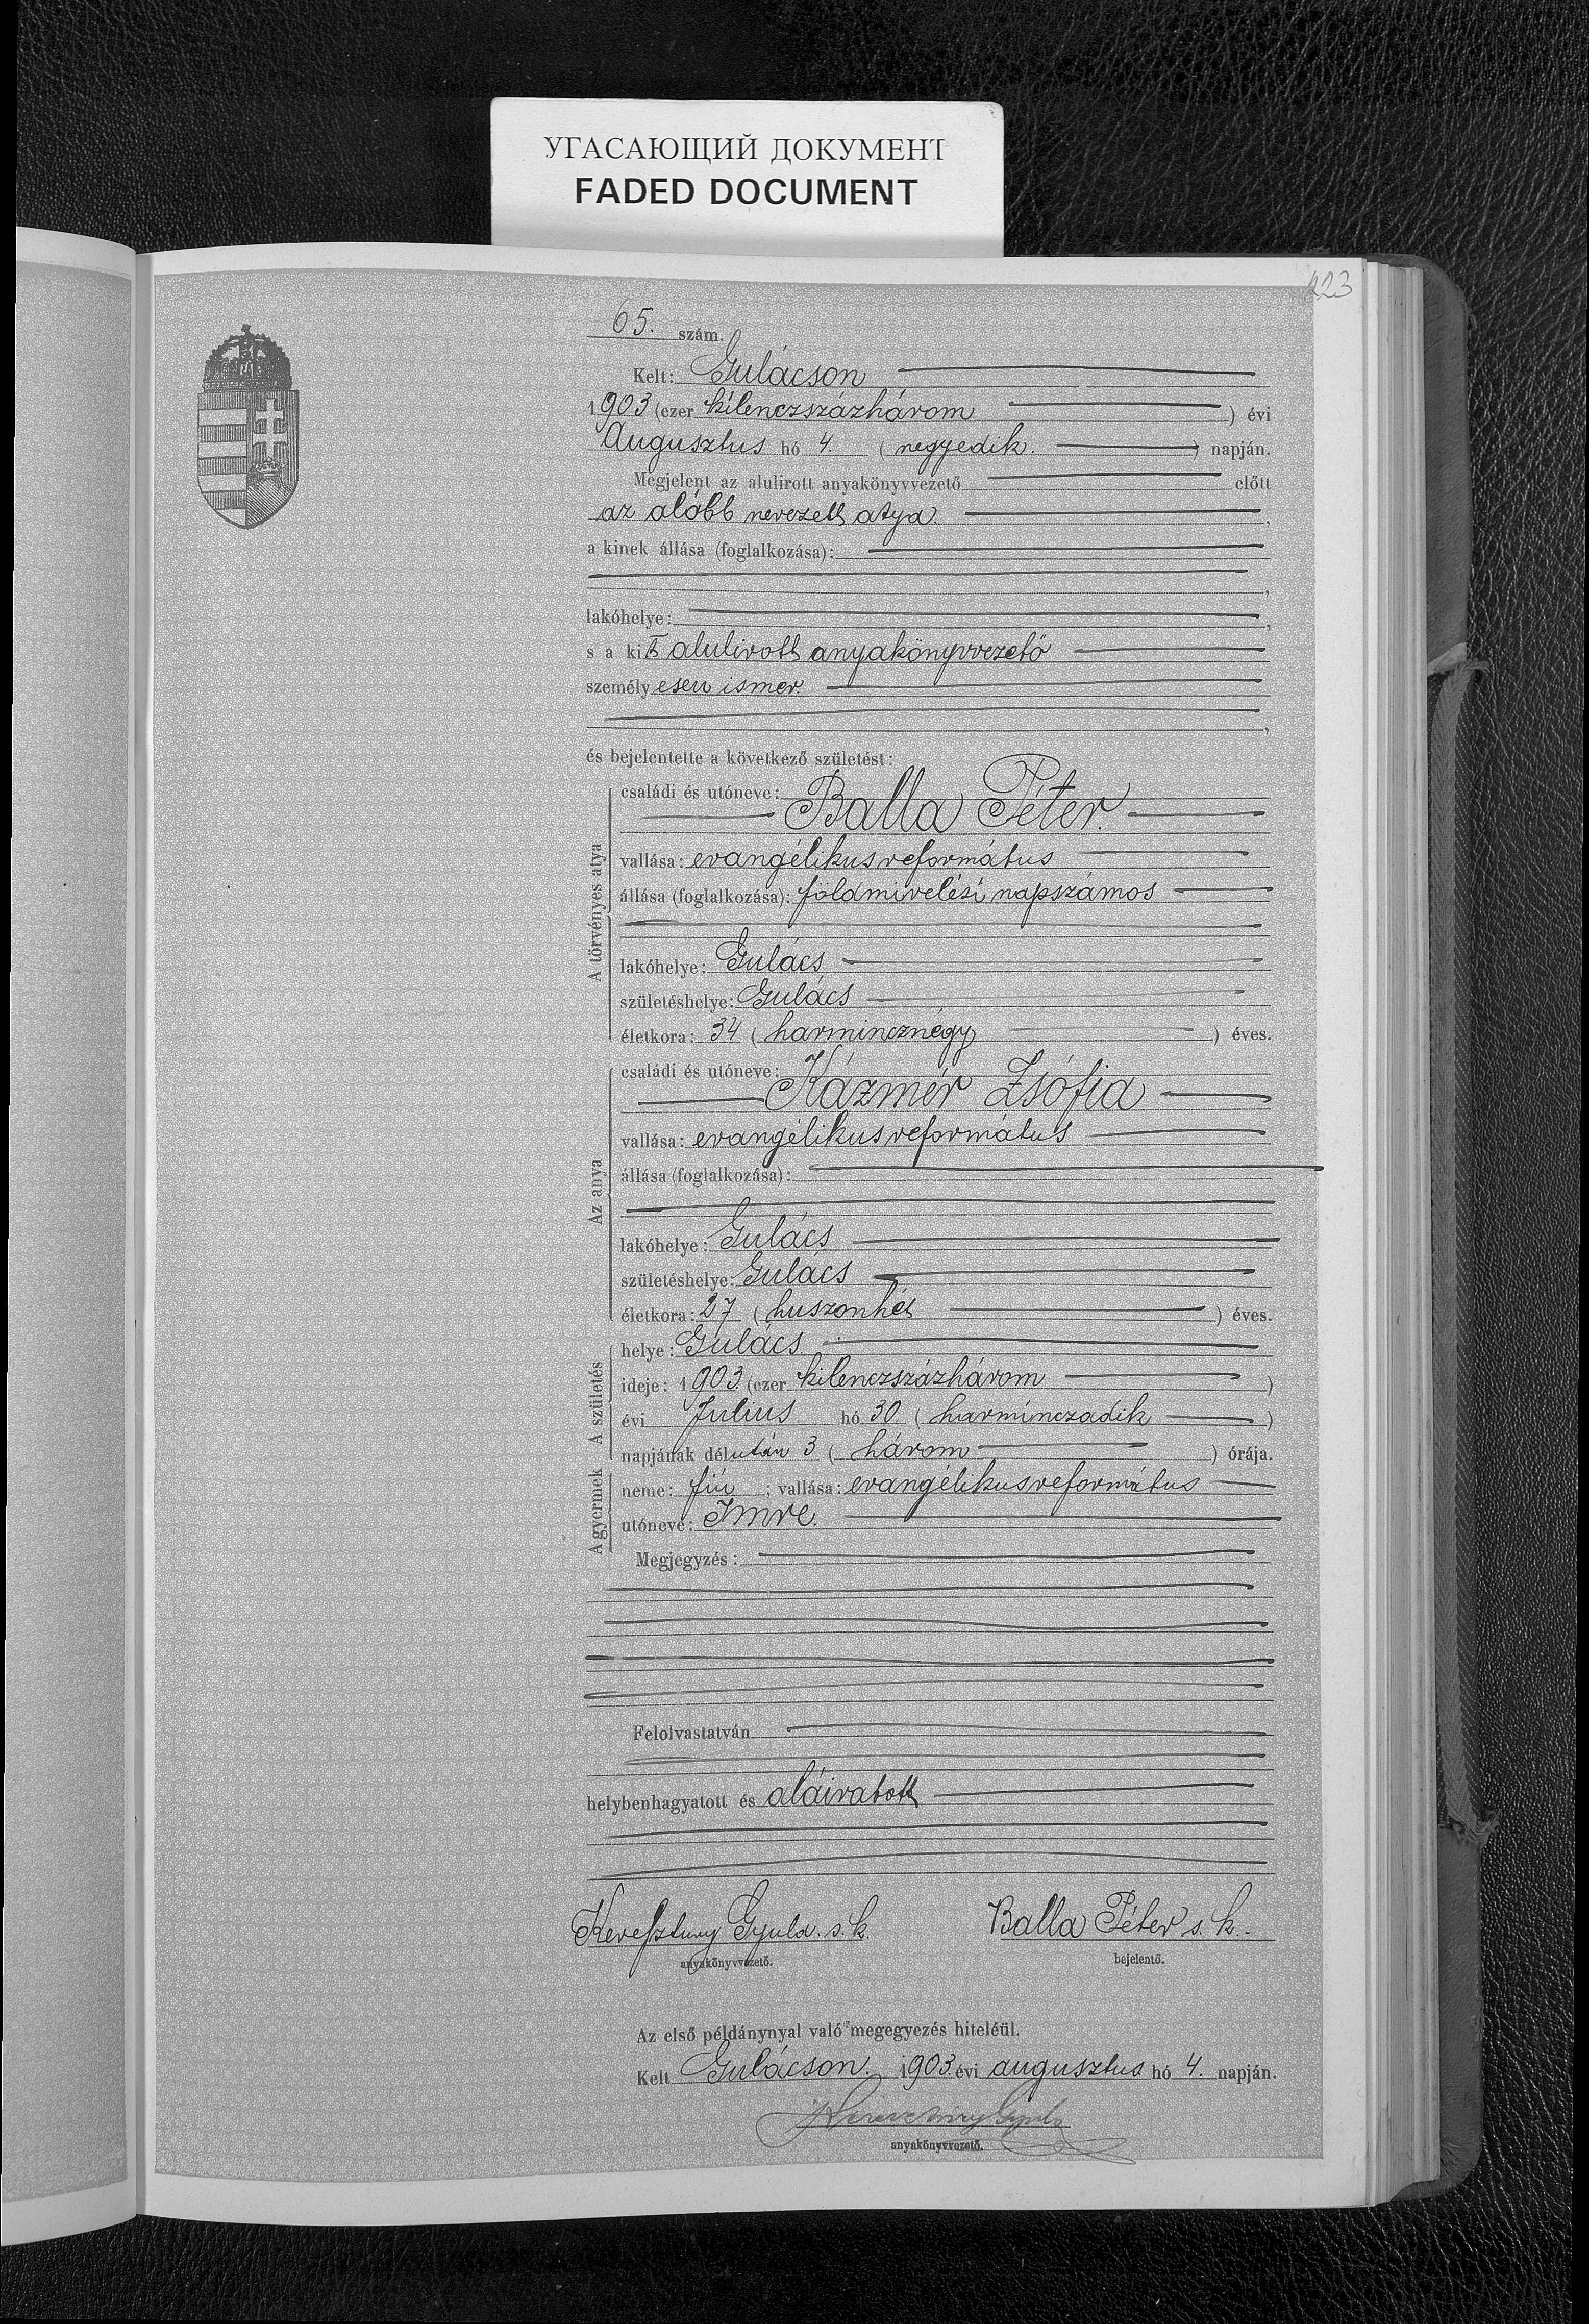 УГАСАЮЩИЙ ДОКУМЕНТ
FADED DOCUMENT
223
65. szám.
Kelt: Gulácson
1903 (ezer kilenczszázhárom) évi
Augusztus hó 4. (negyedik.) napján.
Megjelent az alulirott anyakönyvvezető előtt
az alább nevezett atya.,
a kinek állása (foglalkozása):
,
lakóhelye:,
s a kit alulirott anyakönyvvezető
személyesen ismer.
,
és bejelentette a következő születést:
A törvényes atya
családi és utóneve:
Balla Péter.
vallása: evangélikusreformátus
állása (foglalkozása): földmivelési napszámos
lakóhelye: Gulács
születéshelye: Gulács
életkora: 34 (harmincznégy) éves.
Az anya
családi és utóneve:
Kázmér Zsófia
vallása: evangélikusreformátus
állása (foglalkozása):
lakóhelye: Gulács
születéshelye: Gulács
életkora: 27 (huszonhét) éves.
A születés
helye: Gulács.
ideje: 1903. (ezer kilenczszázhárom)
évi Julius hó 30 (harminczadik)
napjának délután 3 (három) órája.
A gyermek
neme: fiú; vallása: evangélikusreformátus
utóneve: Imre.
Megjegyzés:
Felolvastatván
helybenhagyatott és aláiratott
Keresztury Gyula. s. k. Balla Péter s. k.
anyakönyvvezető. bejelentő.
Az első példánynyal való megegyezés hiteléül.
Kelt Gulácson. 1903. évi augusztus hó 4. napján.
Keresztúry Gyula
anyakönyvvezető.